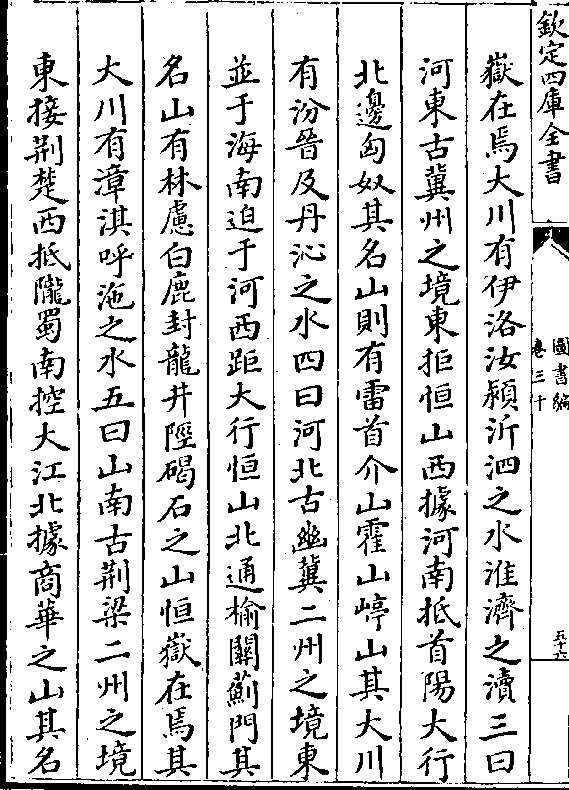 欽定四庫全書
圖書編
卷三十
五十六
嶽在焉大川有伊洛汝潁沂泗之水淮濟之瀆三曰
河東古冀州之境東拒恒山西據河南抵首陽大行
北邊匈奴其名山則有雷首介山霍山崞山其大川
有汾晉及丹沁之水四曰河北古幽冀二州之境東
並于海南迫于河西距大行恒山北通榆關薊門其
名山有林慮白鹿封龍井陘碣石之山恒嶽在焉其
大川有漳淇呼沲之水五曰山南古荆梁二州之境
東接荆楚西抵隴蜀南控大江北據商華之山其名